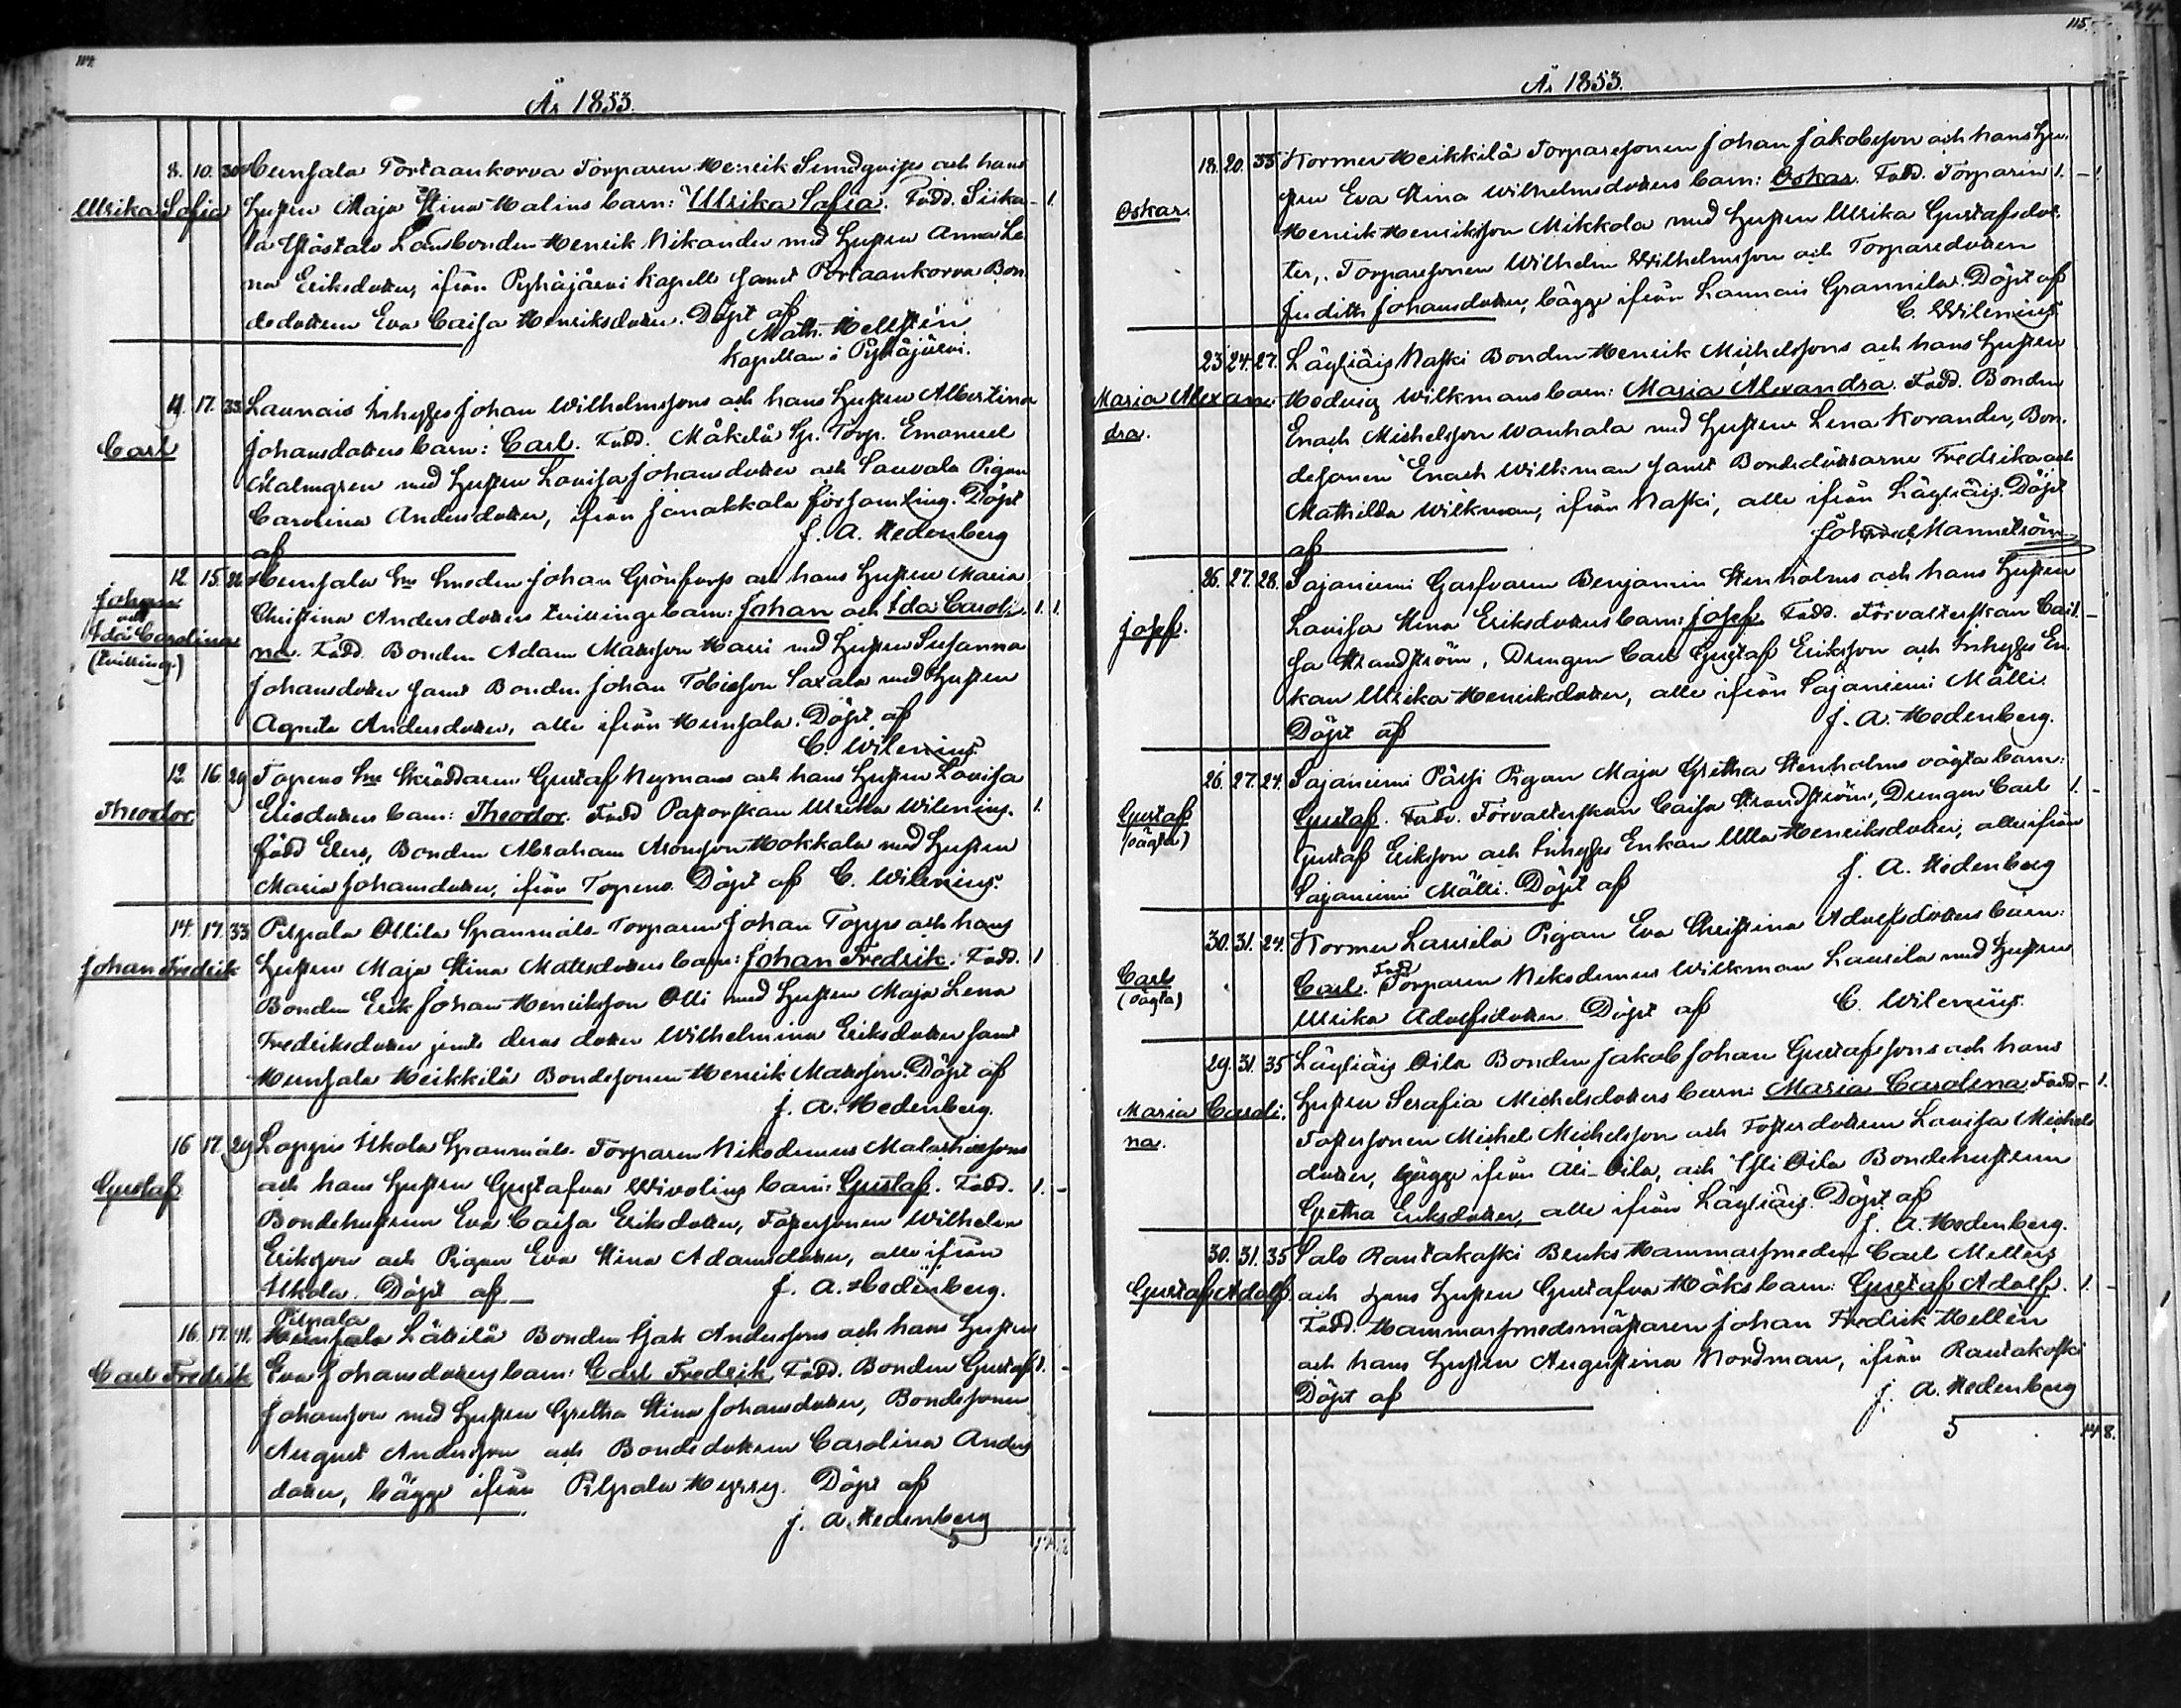 114.
År 1853.
8. 10. 30 Hunsala Portaankorva Torparen Henrik Sundqvists och hans
Ulrika Sofia Hustru Maja Stina Malins barn: Ulrika Sofia. Fadd. Siika- 1.
la Yöstalo Landbonden Henrik Nikander med Hustru Anna Le-
na Eriksdotter, ifrån Pyhäjärvi Kapell samt Portaankorva Bon-
dedottren Eva Caisa Henriksdotter. Döpt af
Math. Hellstén
Kapellan i Pyhäjärvi.
11. 17. 33. Launais Inhyses Johan Wilhelmssons och hans Hustru Albertina
Carl Johansdotters barn: Carl. Fadd. Mäkilä Sp. Torp. Emanuel
Malmgren med Hustru Lovisa Johansdotter och Sauvala Pigan
Carolina Andersdotter, ifrån Janakkala församling. Döpt
af J. A. Hedenberg
12. 15. 22. Hunsala Sne Smeden Johan Grönfors och hans Hustru Maria
Johan och Ida Carolina (tvilling.) Christina Andersdotters tvillingebarn: Johan och Ida Caroli- 1. 1.
na. Fadd. Bonden Adam Matsson Harri med Hustru Susanna
Johansdotter samt Bonden Johan Tobiesson Saxala med Hustru
Agneta Andersdotter, alla ifrån Hunsala. Döpt af
C. Wilenius.
12 16. 29 Topeno Sne Skräddaren Gustaf Nymans och hans Hustru Lovisa
Theodor. Elisdotters barn: Theodor. Fadd Pastorskan Ulrika Wilenius. 1.
född Elers, Bonden Abraham Aronsson Hokkala med Hustru
Maria Johansdotter, ifrån Topeno. Döpt af C. Wilenius.
14. 17. 33. Pilpala Ollila Spanmåls Torparen Johan Topps och hans
Johan Fredrik Hustru Maja Stina Mattsdotters barn: Johan Fredrik. Fadd. 1
Bonden Erik Johan Henriksson Olli med Hustru Maja Lena
Fredriksdotter jemte deras dotter Wilhelmina Eriksdotter samt
Hunsala Heikkilä Bondesonen Henrik Matsson. Döpt af
J. A. Hedenberg.
16 17. 29 Loppis Ukola Spanmåls Torparen Nikodemus Malakiassons
Gustaf och hans Hustru Gustafva Wivolins barn: Gustaf. Fadd. 1. -
Bondehustrun Eva Caisa Eriksdotter, Fostersonen Wilhelm
Eriksson och Pigan Eva Stina Adamsdotter, alla ifrån
Ukola. Döpt af J. A. Hedenberg.
Pilpala
16. 17. 41. Hunsala Lättilä Bonden Isak Anderssons och hans Hustru
Carl Fredrik Eva Johansdotters barn: Carl Fredrik. Fadd. Bonden Gustaf 1. -
Johansson med Hustru Gretha Stina Johansdotter, Bondesonen
August Andersson och Bondedottren Carolina Anders-
dotter, bägge ifrån Pilpala Hyrsy. Döpt af
J. A. Hedenberg
5
115.
År 1853.
18. 20. 33 Kormu Heikkilä Torparesonen Johan Jakobsson och hans Hu-
Oskar. stru Eva Stina Wilhelmsdotters barn: Oskar. Fadd. Torparen 1. -
Henrik Henriksson Mikkola med Hustru Ulrika Gustafsdot-
ter, Torparesonen Wilhelm Wilhelmsson och Torparedottren
Judith Johansdotter, bägge ifrån Launais Grannila. Döpt af
C. Wilenius.
23 24. 27. Läyliäis Naski Bonden Henrik Michelssons och hans Hustru
Maria Alexan- Hedvig Wilkmans barn: Maria Alexandra. Fadd. Bonden
dra. Enoch Michelsson Wanhala med Hustru Lena Korander, Bon-
desonen Enoch Wilkman samt Bondedöttrarne Fredrika och
Mathilda Wilkman, ifrån Naski, alla ifrån Läyliäis. Döpt
af Joh Fred. Mannström
26. 27. 28. Sajaniemi Garfvaren Benjamin Stenholms och hans Hustru
Josef. Lovisa Stina Eriksdotters barn: Josef. Fadd. Förvalterskan Cai- 1. -
sa Strandström, Drengen Carl Gustaf Eriksson och Inhyses En-
kan Ulrika Henriksdotter, alla ifrån Sajaniemi Mälli.
Döpt af J. A. Hedenberg.
26. 27. 24. Sajaniemi Pärssi Pigan Maja Gretha Stenholms oägta barn:
Gustaf (oägta) Gustaf. Fadd. Förvalterskan Caisa Strandström, Drengen Carl 1. -
Gustaf Eriksson och Inhyses Enkan Ulla Henriksdotter, alla ifrån
Sajaniemi Mälli. Döpt af J. A. Hedenberg
30. 31. 24. Kormu Laurila Pigan Eva Christina Adolfsdotters barn:
Carl (oägta) Carl. Fadd Torparen Nikodemus Wilkman Laurila med Hustru
Ulrika Adolfsdotter. Döpt af C. Wilenius
29. 31. 35 Läyliäis Oila Bonden Jakob Johan Gustafssons och hans
Maria Caroli- Hustru Serafia Michelsdotters barn: Maria Carolina. Fadd. - 1.
na. Fostersonen Michel Michelsson och Fosterdottren Lovisa Michels-
dotter, bägge ifrån Ali-Oila, och Yli Oila Bondehustrun
Gretha Eriksdotter, alla ifrån Läyliäis. Döpt af
J. A. Hedenberg.
30. 31. 35 Salo Rautakoski Bruks Hammarsmeden Carl Mellers
Gustaf Adolf. och hans Hustru Gustafva Höks barn: Gustaf Adolf. 1. -
Fadd. Hammarsmedsmästaren Johan Fredrik Hellén
och hans Hustru Augustina Nordman, ifrån Rautakoski
Döpt af J. A. Hedenberg
5 14 8.